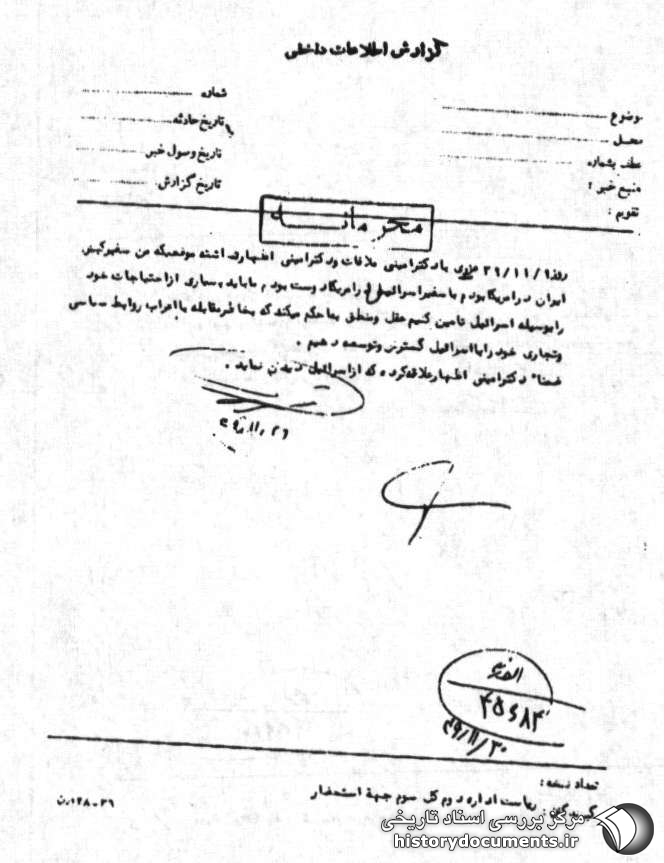 گزارش اطلاعات داخلی
موضوع
محل
عطف بشماره
منبع خبر :
تقویم :
شماره
تاریخ حادثه
تاریخ وصول خبر
تاریخ گزارش
محرمانه
روز ۲۹/۱۱/۹ با دکتر امینی ملاقات و دکتر امینی اظهار داشته موقعیکه من سفیر کبیر
ایران در امریکا بودم با سفیر اسرائیل در امریکا دوست بودم ما باید بسیاری از احتیاجات خود
را بوسیله اسرائیل تامین کنیم عقل و منطق بما حکم میکند که بخاطر مقابله با اعراب روابط سیاسی
و تجاری خود را با اسرائیل گسترش و توسعه دهیم .
ضمنا" دکتر امینی اظهار علاقه کرده که از اسرائیل دیدن نماید .
۴۵۶۸۳
۴۹/۱۱/۲۰
تعداد نسخه :
ریاست اداره دوم کل سوم جهة استحضار
۳۶-۱۲۸
مرکز بررسی اسناد تاریخی
historydocuments.ir